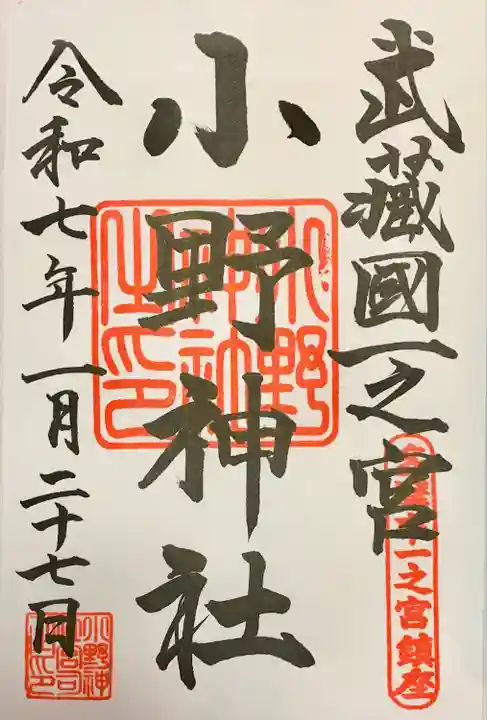 武藏國一之宮
一之宮鎮座
小野神社
小野神社之印
令和七年一月二十七日
小野神社宮司之印